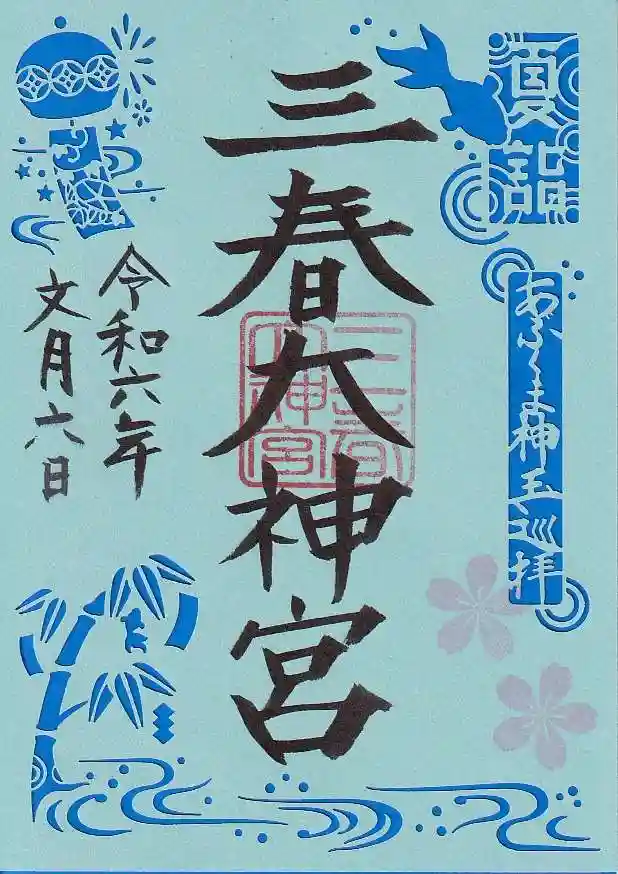 夏詣
あぶくま神玉巡拝
三春大神宮
三春大神宮
令和六年
文月六日